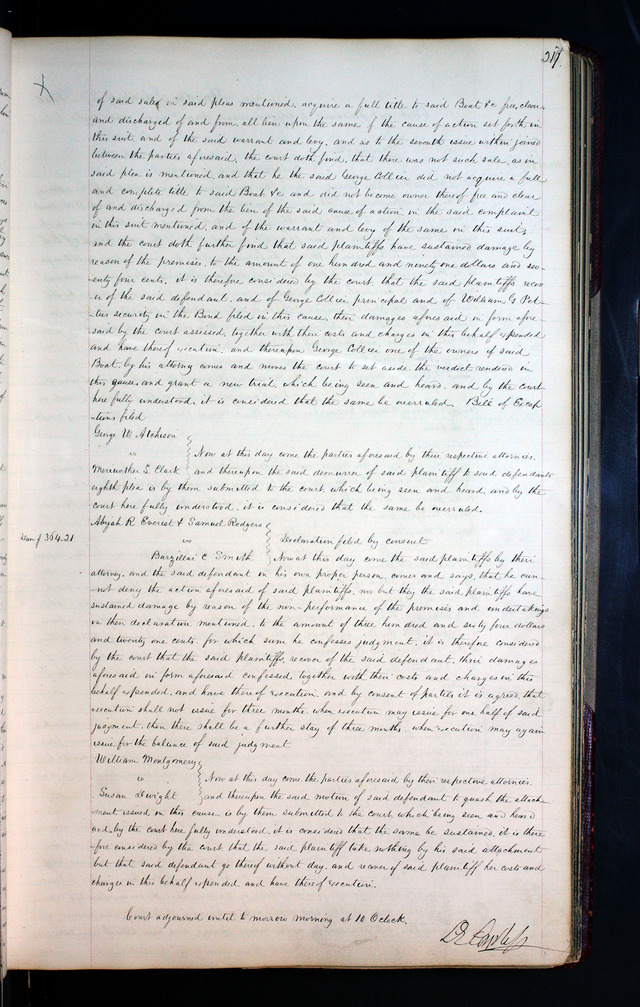 217.
of said sales in said pleas mentioned, acquire a full title to said Boat &c free, clear
and discharged of and from, all lien upon the same of the cause of action set forth in
this suit, and of the said warrant and levy, and as to the seventh issue within joined
between the parties aforesaid, the court doth find, that there was not such sale, as in
said plea is mentioned, and that he the said George Collier did not acquire a full
and complete title to said Boat &c and did not become owner thereof free and clear
of and discharged from the lien of the said cause of action, in the said complaint
in this suit mentioned, and of the warrant and levy of the same in this suit,
and the court doth further find that said plaintiffs have sustained damage by
reason of the premises, to the amount of one hundred and ninety one dollars and sev-
enty four cents, it is therefore considered by the court, that the said plaintiffs recov-
er of the said defendant, and of George Collier principal and of William G Pet-
tus security in the Bond filed in this cause, their damages aforesaid in form afore
said by the court assessed, together with their costs and charges in this behalf expended
and have thereof execution, and thereupon George Collier one of the owners of said
Boat, by his attorney comes and moves the court to set aside the verdict rendered in
this cause, and grant a new trial which being seen and heard, and by the court
here fully understood, it is considered that the same be overruled. Bill of Excep
-tions filed
George W Atchison
vs Now at this day come the parties aforesaid by there respective attornies,
Meriwether L Clark and thereupon the said demurrer of said plaintiff to said defendants
eighth plea is by them submitted to the court, which being seen and heard, and by the
court here fully understood, it is considered that the same be overruled.
Abijah R Everist & Samuel Rodgers
Dem of 364.21 vs Declaration filed by consent
Barzillai C Smith Now at this day come the said plaintiffs by their
attorney, and the said defendant in his own proper person, comes and says, that he can-
not deny the action aforesaid of said plaintiffs, nor but they the said plaintiffs have
sustained damage by reason of the non-performance of the premises and undertakings
in their declaration mentioned, to the amount of three hundred and sixty four dollars
and twenty one cents, for which sum he confesses judgment, it is therefore considered
by the court that the said plaintiffs recover of the said defendant, their damages
aforesaid in form aforesaid confessed, together with their costs and charges in this
behalf expended, and have thereof execution, and by consent of parties it is agreed, that
execution shall not issue for three months, when execution may issue for one half of said
judgment, then there shall be a further stay of three months, when execution may again
issue for the balance of said judgment
William Montgomery
vs Now at this day come the parties aforesaid by their respective attornies,
Susan Dwight and thereupon the said motion of said defendant to quash the attach-
ment issued in this cause is by them submitted to the court which being seen and heard
and by the court here fully understood, it is considered that the same be sustained, it is there
fore considered by the court that the said plaintiff take nothing by his said attachment
but that said defendant go thereof without day, and recover of said plaintiff her costs and
charges in this behalf expended and have thereof execution.
Court adjourned until to morrow morning at 10 Oclock.